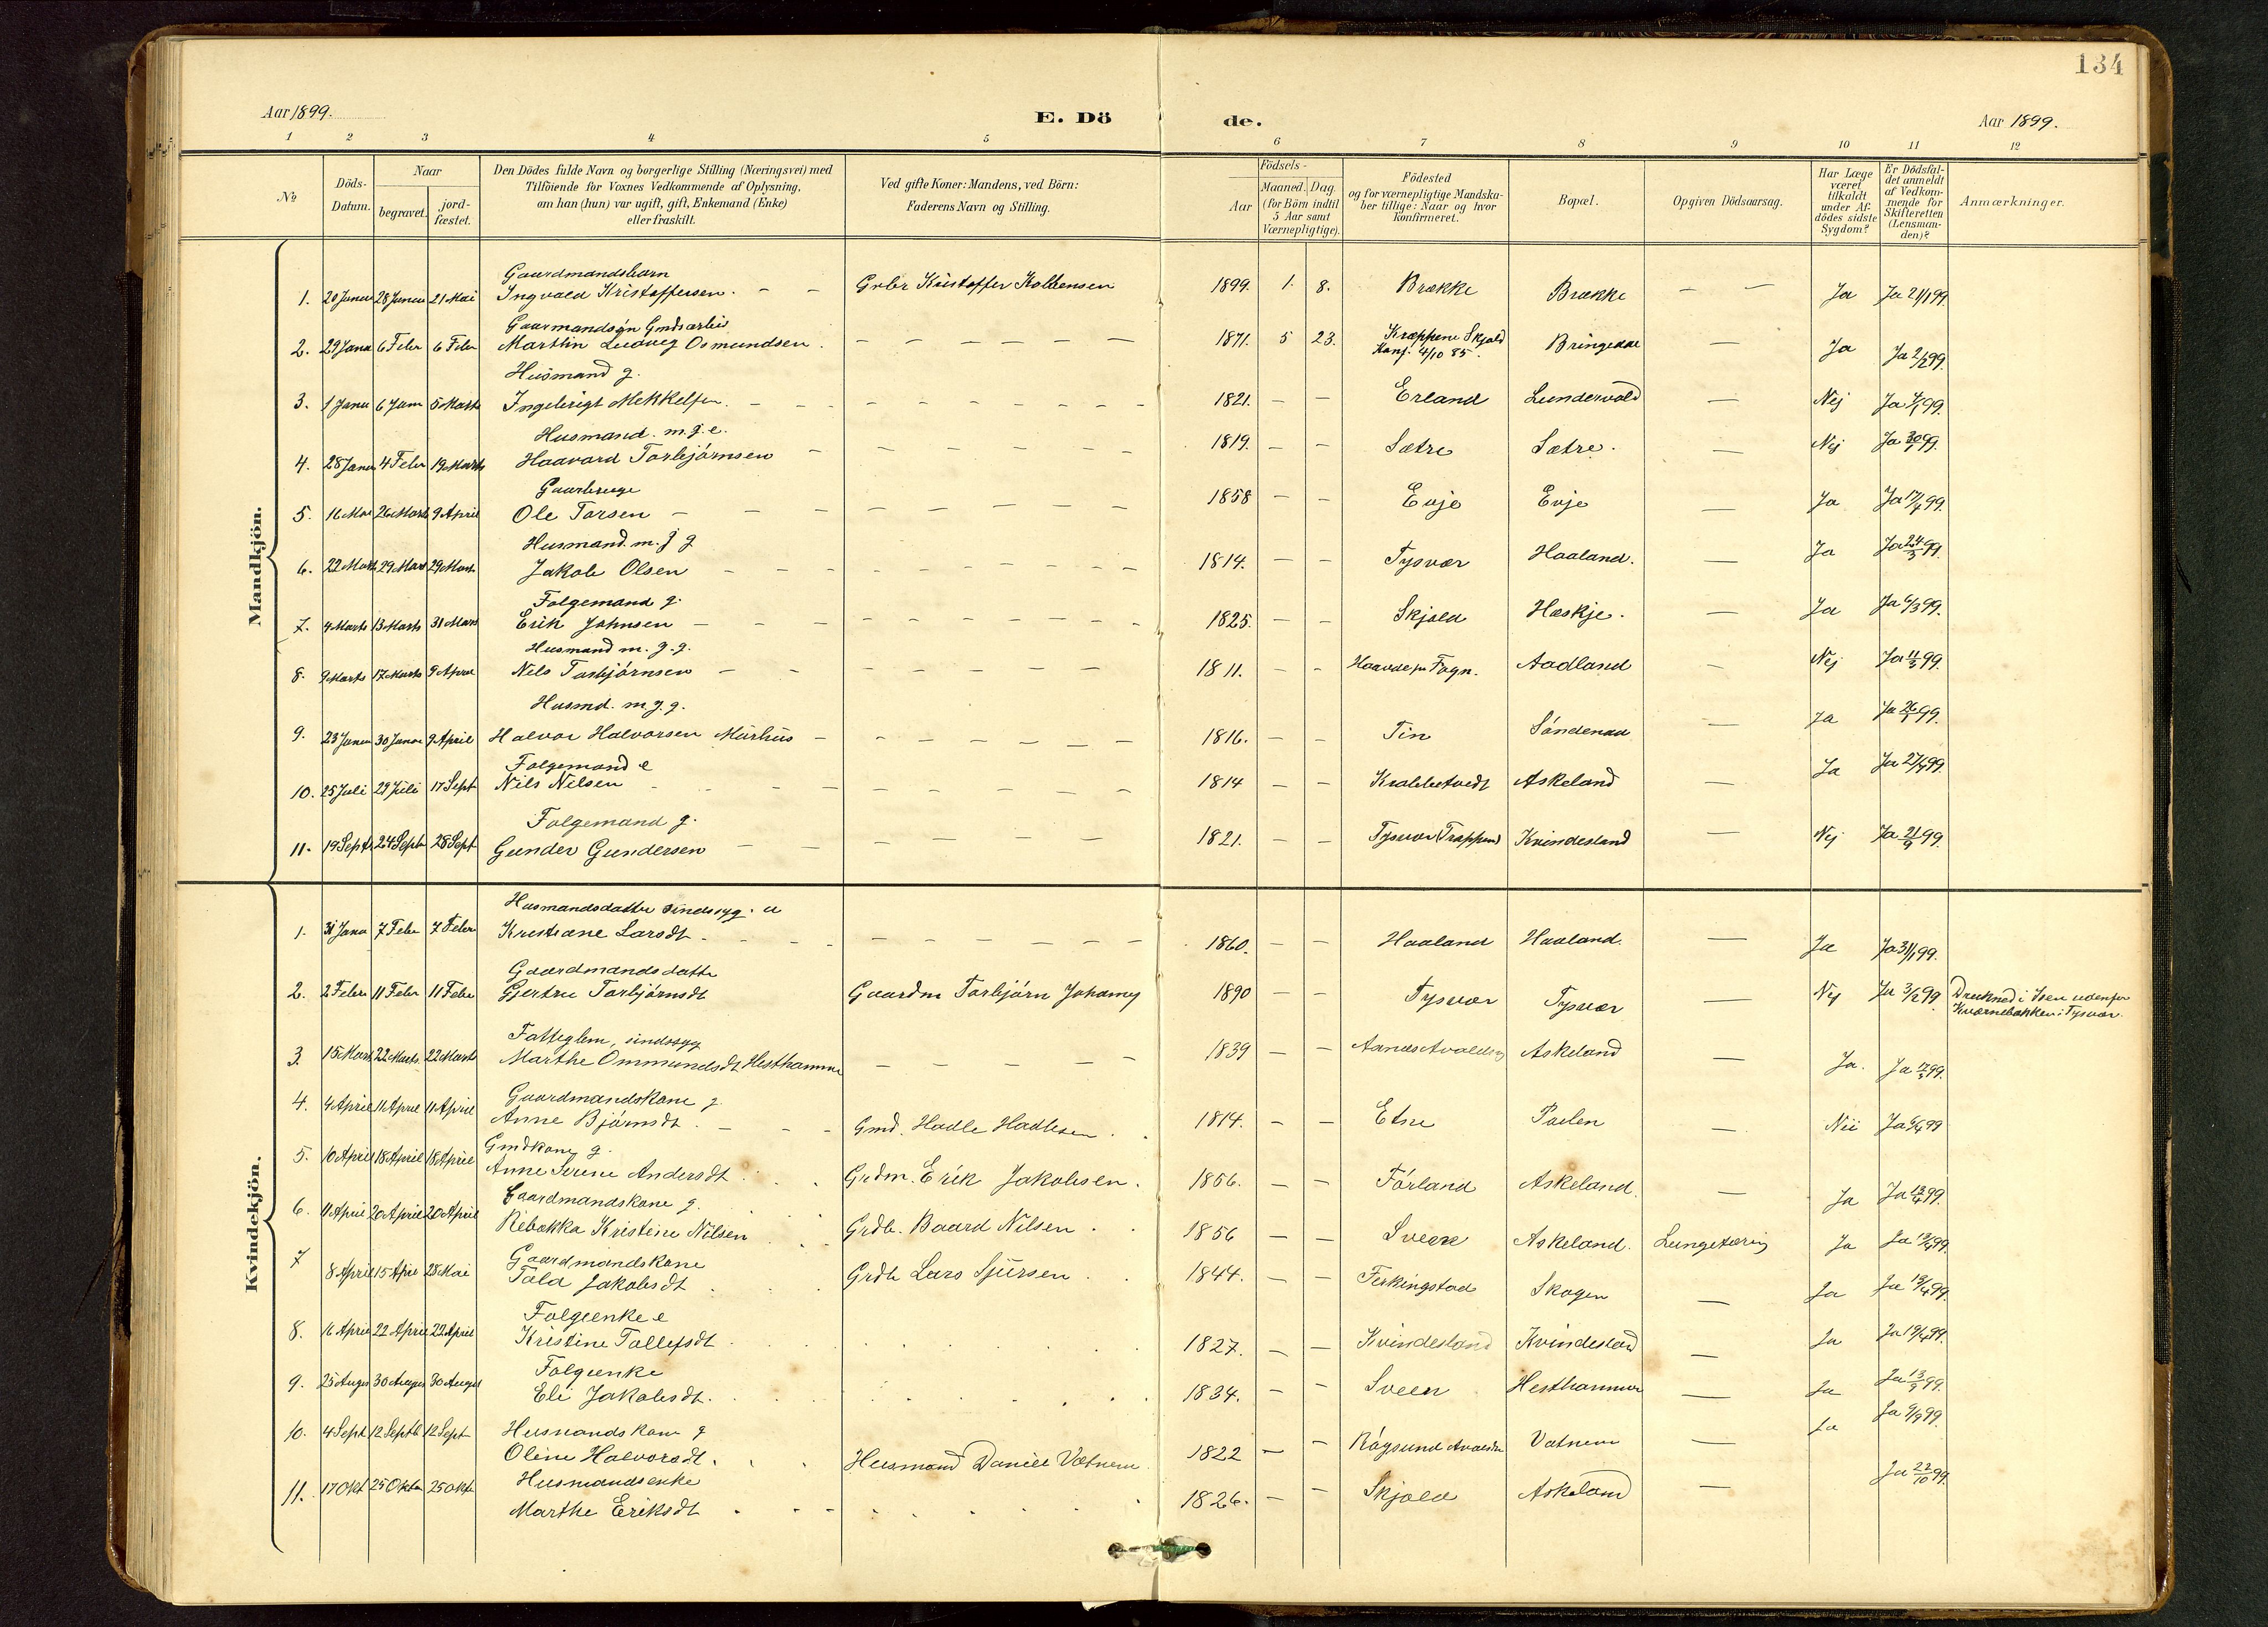 134
Aar 1899. E. Dö de. Aar 1899.
1 2 3 4 5 6 7 8 9 10 11 12
№ Döds-Datum. Naar begravet. jordfæstet. Den Dödes fulde Navn og borgerlige Stilling (Næringsvei) med Tilföiende for Voxnes Vedkommende af Oplysning, om han (hun) var ugift, gift, Enkemand (Enke) eller fraskilt. Ved gifte Koner: Mandens, ved Börn: Faderens Navn og Stilling. Födsels- Aar Maaned. Dag. (for Börn indtil 5 Aar samt Værnepligtige). Födested og for værnepligtige Mandskaber tillige: Naar og hvor konfirmeret. Bopæl. Opgiven Dödsaarsag. Har Læge været tilkaldt under Afdödes sidste Sygdom? Er Dödsfaldet anmeldt af Vedkommende for Skifteretten (Lensmanden)? Anmærkninger.
Mandkjön.
Gaardmandsbarn
1. 20 Januar 28 Januar 21 Mai Ingvald Kristoffersen. – – Grbr Kristoffer Kolbensen 1899. 1. 8. Brække Brække – – Ja Ja 21/1 99.
Gaarmandsøn Gmdsarbei
2. 29 Janu 6 Febr 6 Febr Marthin Ludvig Osmundsen. – – – 1871. 5 23. Kræppene Skjold Konf. 4/10 85. Bringedal – Ja Ja 2/2 99.
Husmand g.
3. 1 Janu 6 Janu 5 Marts Ingebrigt Mekkelsen. – – 1821. – – Erland Lundervold – Nej Ja 7/1 99.
Husmand. m. j. e.
4. 28 Janu 4 Febr 19 Marts Haavard Torbjörnsen – – 1819. – – Sætre Sætre. – Nej Ja 30/1 99.
Gaarbruge
5. 16 Mar 26 Marts 9 April Ole Torsen – – 1858 – – Evje Evje – Ja Ja 17/4 99.
Husmand. m. j g
6. 22 Marts 29 Mars 29 Mart. Jakob Olsen – – 1814. – – Tysvær Haaland. – Ja Ja 24/3 99.
Folgemand g.
7. 4 Marts 13 Marts 31 Mars Erik Johnsen – – 1825. – – Skjold Hæskje. – Ja Ja 6/3 99.
Husmand m. j. g.
8. 9 Marts 17 Marts 9 April Nils Torbjörnsen – – 1811. – – Aadland – Nej Ja 11/3 99.
Husmd. m. j. g.
9. 23 Januar 30 Januar 9 April Halvor Halvorsen Murhus – – 1816. – – Tin Söndenaa – Ja Ja 26/1 99.
Folgemand e
10. 25 Juli 29 Juli 17 Sept Nils Nilsen – – 1814 – – Krabbetvedt Askeland – Ja Ja 27/7 99.
Folgemand g.
11. 19 Sept. 24 Sept 28 Sept Gunder Gundersen – – 1821. – – Tysvær Kvindesland – Nej Ja 21/9 99.
Kvindekjön.
Husmandsdatter sindssyg. u
1. 31 Janu 7 Febr 7 Febr Kristiane Larsdt – – 1860. – – Haaland Haaland. – Ja Ja 31/1 99.
Gaardmandsdatte
2. 2 Febr 11 Febr 11 Febr Gjertru Torbjörnsdt Gaardm Torbjörn Johannes 1890 – – Tysvær Tysvær – Nej Ja 3/2 99. Druknedi Isen udenfor Kværnebækken i Tysvær.
Fatteglem, sindssyg
3. 15 Mart 22 Marts. 22 Marts Marthe Ommundsdt Hesthammer – – 1839 – – Askeland – Ja. Ja 17/3 99.
Gaardmandskone g
4. 4 April 11 April 11 April Anne Björnsdt. – – Gmd. Hadle Hadlesen. 1814. – – Etne – Nei Ja 6/4 99
Gmdkone g.
5. 10 April 18 April 18 April Anne Serene Andersdt. Grdm. Erik Jakobsen. 1856. – – Förland Askeland. – Ja Ja 13/4 99.
Gaardmandskone g.
6. 11 April 20 April 20 April Rebækka Kristine Nilsen Grdb. Baard Nilsen. 1856 – – Sveen Askeland. Lungetæring Ja Ja 13/4 99.
Gaardmandskone
7 8 April 15 Apri 28 Mai Tala Jakobsdt Grdb Lars Sjursen. 1844. – – Ferkingstad Skogen – Ja Ja 13/4 99.
Folgeenke e
8. 16 April 22 April 22 April Kristine Tollefsdt 1827. – – Kvindesland Kvindesland – Ja Ja 19/4 99.
Folgeenke
9. 25 Augus 30 Augus 30 August Eli Jakobsdt. 1834. – – Sveen Hesthammer – Ja Ja 13/9 99.
Husmandskone g
10. 4 Sept 12 Septb 12 Sept Oline Halvorsdt. Husmand Daniel Vatnem 1822 – – Vatnem – Ja Ja 9/9 99.
Husmandsenke
11. 17 Okt 25 Oktr 25 Okt Marthe Eriksdt 1826. – – Skjold Askeland – Ja 22/10 99.